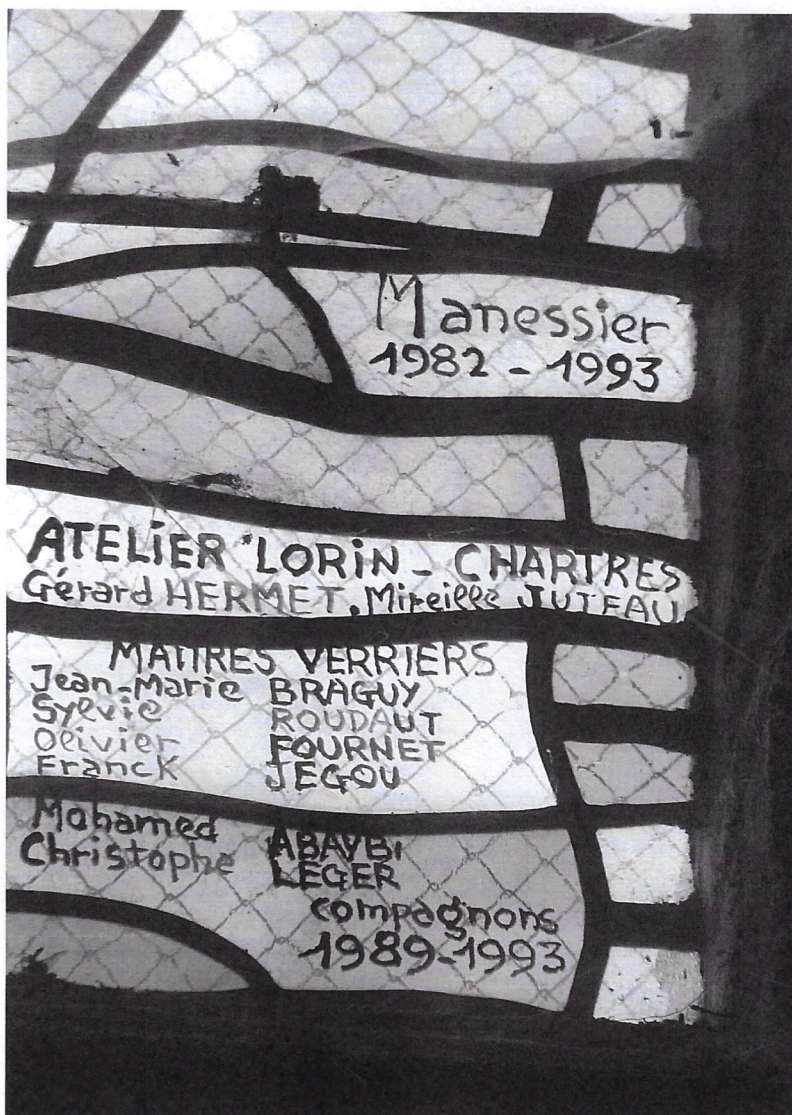 Manessier
1982 - 1993
ATELIER LORIN - CHARTRES
Gérard HERMET. Mireille JUTEAU
MAITRES VERRIERS
Jean-Marie BRAGUY
Sylvie ROUDAUT
Olivier FOURNET
Franck JEGOU
Mohamed
Christophe LEGER
compagnons
1989-1993